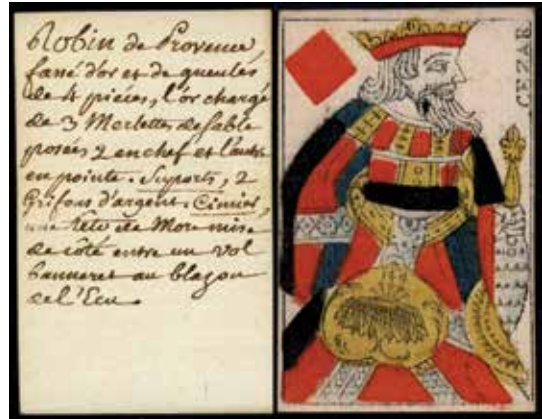 Robin de Provence,
fassé d'or et de gueules
de 4 pieces, l'or chargé
de 3 Merlettes de sable
posées 2 en chef et l'autre
en pointe. Suports, 2
Grifons d'argent. Cimier,
une Tete de More mise
de côté entre un vol
banneret au blazon
de l'Ecu.
CEZAR